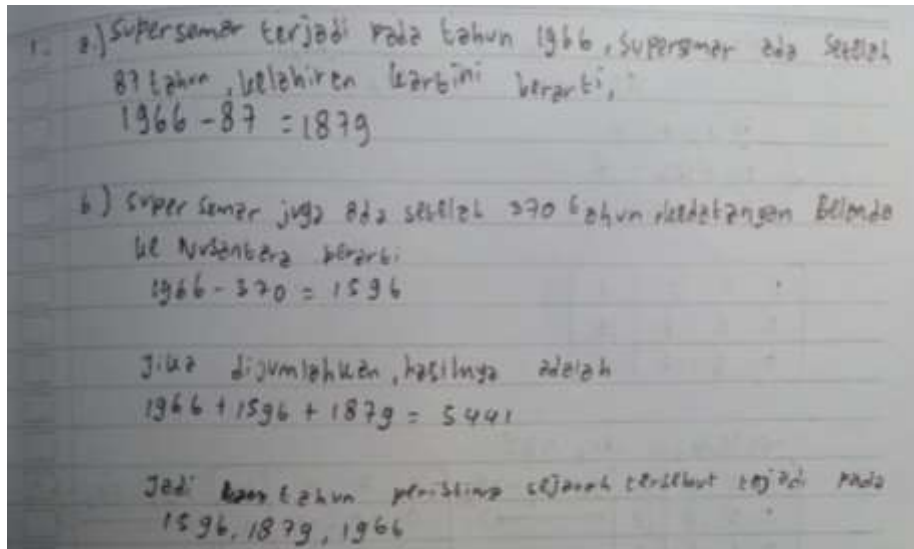 1. a.) Supersemar terjadi pada tahun 1966, Supersemar ada setelah
87 tahun, kelahiran kartini berarti,
1966 - 87 = 1879
b) Super semar juga ada setelah 370 tahun kedatangan Belanda
ke Nusantara berarti
1966 - 370 = 1596
Jika dijumlahkan, hasilnya adalah
1966 + 1596 + 1879 = 5441
Jadi tahun peristiwa sejarah tersebut terjadi pada
1596, 1879, 1966